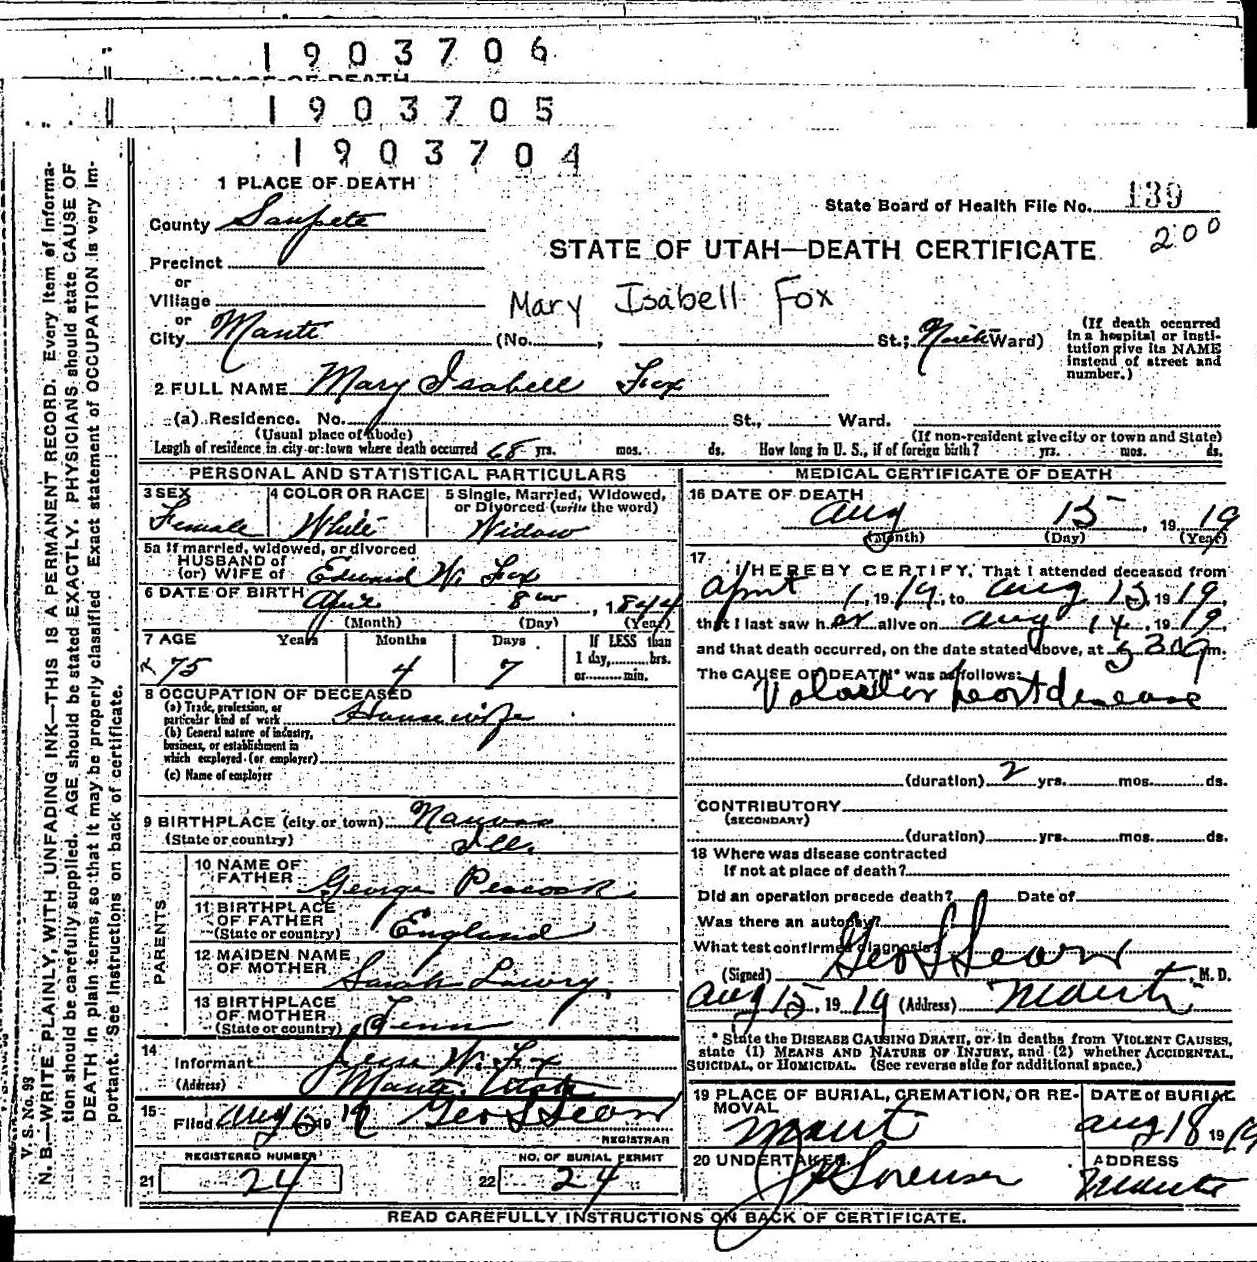 1903706
PLACE OF DEATH
1903705
1903704
1 PLACE OF DEATH
State Board of Health File No. 139
200
County Sanpete
STATE OF UTAH—DEATH CERTIFICATE
Precinct
or
Village
Mary Isabell Fox
or
City Manti (No. ; St.; North Ward)
(If death occurred in a hospital or institution give its NAME instead of street and number.)
2 FULL NAME Mary Isabell Fox
(a) Residence. No. St., Ward.
(Usual place of abode) (If non-resident give city or town and State)
Length of residence in city or town where death occurred 68 yrs. mos. ds. How long in U. S., if of foreign birth? yrs. mos. ds.
PERSONAL AND STATISTICAL PARTICULARS
3 SEX 4 COLOR OR RACE 5 Single, Married, Widowed, or Divorced (write the word)
Female White Widow
5a If married, widowed, or divorced
HUSBAND of
(or) WIFE of Edward W. Fox
6 DATE OF BIRTH April 8 , 1844
(Month) (Day) (Year)
7 AGE Years Months Days If LESS than
1 day, hrs.
75 4 7 or min.
8 OCCUPATION OF DECEASED
(a) Trade, profession, or
particular kind of work Housewife
(b) General nature of industry,
business, or establishment in
which employed (or employer)
(c) Name of employer
9 BIRTHPLACE (city or town) Nauvoo
(State or country) Ill.
PARENTS
10 NAME OF
FATHER George Peacock
11 BIRTHPLACE
OF FATHER
(State or country) England
12 MAIDEN NAME
OF MOTHER Sarah Lowry
13 BIRTHPLACE
OF MOTHER
(State or country) Tenn
14
Informant Jesse W. Fox
(Address) Manti, Utah
15
Filed Aug 19 Geo L Sears
REGISTRAR
REGISTERED NUMBER NO. OF BURIAL PERMIT
21 24 22 24
MEDICAL CERTIFICATE OF DEATH
16 DATE OF DEATH
Aug 15, 1919
(Month) (Day) (Year)
17
I HEREBY CERTIFY, That I attended deceased from
April 1, 1919, to Aug 15, 1919,
that I last saw her alive on Aug 14, 1919,
and that death occurred, on the date stated above, at m.
The CAUSE OF DEATH* was as follows:
heart disease
(duration) 2 yrs. mos. ds.
CONTRIBUTORY
(SECONDARY)
(duration) yrs. mos. ds.
18 Where was disease contracted
If not at place of death?
Did an operation precede death? Date of
Was there an autopsy?
What test confirmed diagnosis?
(Signed) Geo L Sears M. D.
Aug 15, 1919 (Address) Manti
* State the DISEASE CAUSING DEATH, or in deaths from VIOLENT CAUSES,
state (1) MEANS AND NATURE OF INJURY, and (2) whether ACCIDENTAL,
SUICIDAL, or HOMICIDAL. (See reverse side for additional space.)
19 PLACE OF BURIAL, CREMATION, OR RE-
MOVAL
DATE of BURIAL
Manti Aug 18 1919
20 UNDERTAKER ADDRESS
Sorensen Manti
READ CAREFULLY INSTRUCTIONS ON BACK OF CERTIFICATE.
V. S. No. 93
N. B.—WRITE PLAINLY, WITH UNFADING INK—THIS IS A PERMANENT RECORD. Every item of informa-
tion should be carefully supplied. AGE should be stated EXACTLY. PHYSICIANS should state CAUSE OF
DEATH in plain terms, so that it may be properly classified. Exact statement of OCCUPATION is very im-
portant. See instructions on back of certificate.